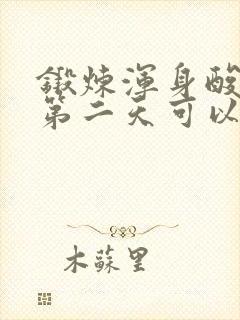 鍛煉渾身酸
第二天可以
木蘇里